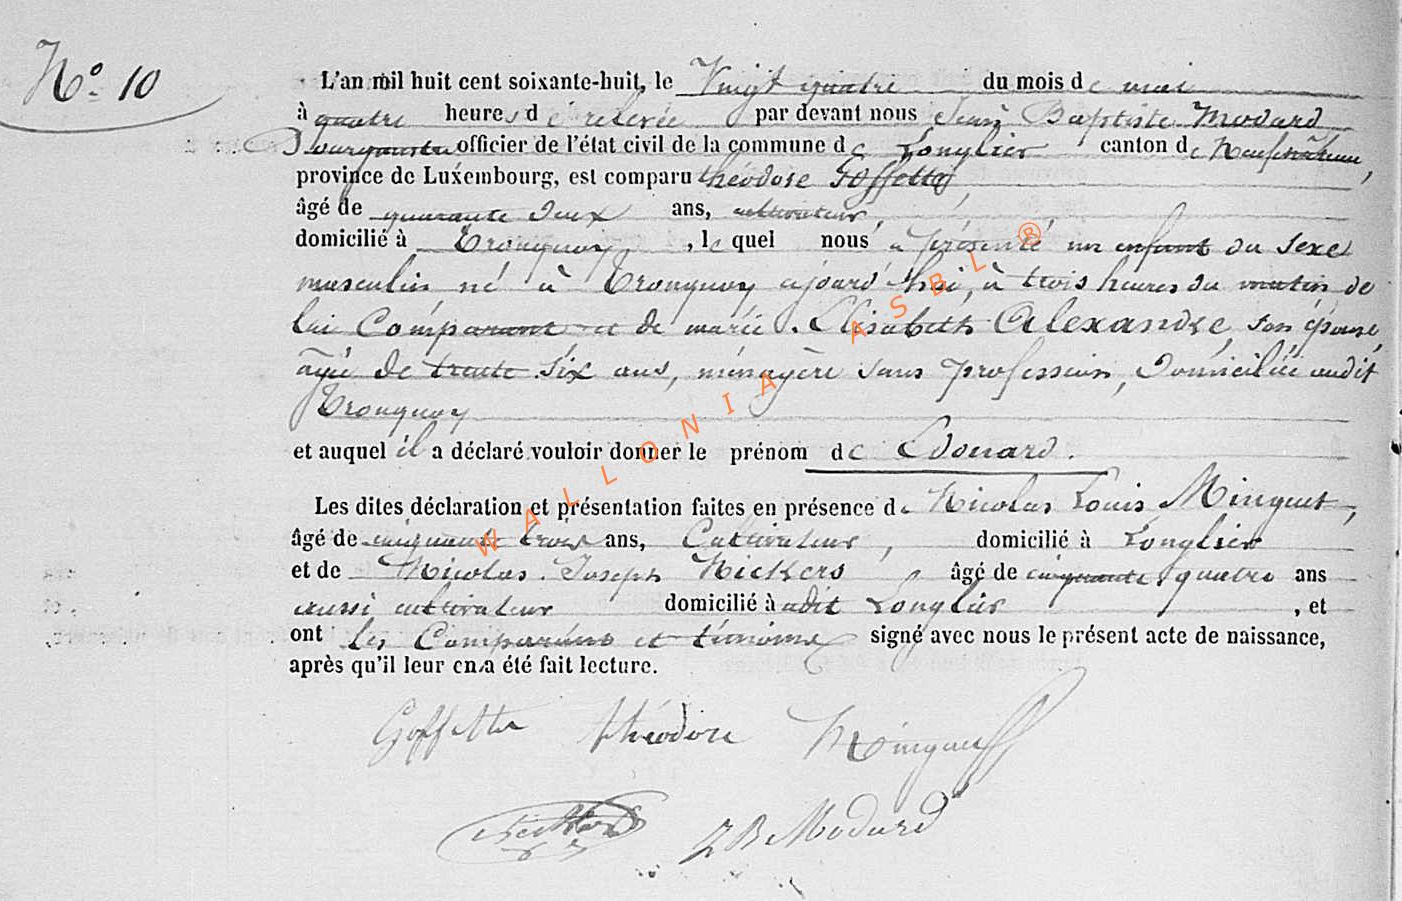 N° 10
L'an mil huit cent soixante-huit, le Vingt quatre du mois de mai
à quatre heures de relevée par devant nous Jean Baptiste Modard
Bourgmestre officier de l'état civil de la commune de Longlier canton de Neufchâteau,
province de Luxembourg, est comparu théodore Goffette
âgé de quarante deux ans, cultivateur,
domicilié à Tronquoy, lequel nous a présenté un enfant du sexe
masculin né à Tronquoy ajourd'hui, à trois heures du matin de
lui Comparant et de marie Elisabeth Alexandre, son épouse,
âgée de trente six ans, ménagère sans profession, Domiciliée audit
Tronquoy
et auquel il a déclaré vouloir donner le prénom de Edouard.
Les dites déclaration et présentation faites en présence de Nicolas Louis Minguet,
âgé de cinquante trois ans, Cultivateur, domicilié à Longlier
et de Nicolas Joseph Nickers âgé de cinquante quatre ans
aussi cultivateur domicilié à udit Longlier, et
ont les Comparans et témoins signé avec nous le présent acte de naissance,
après qu'il leur en a été fait lecture.
Goffette théodore Minguet
JB Modard
WALLONIA ASBL ®